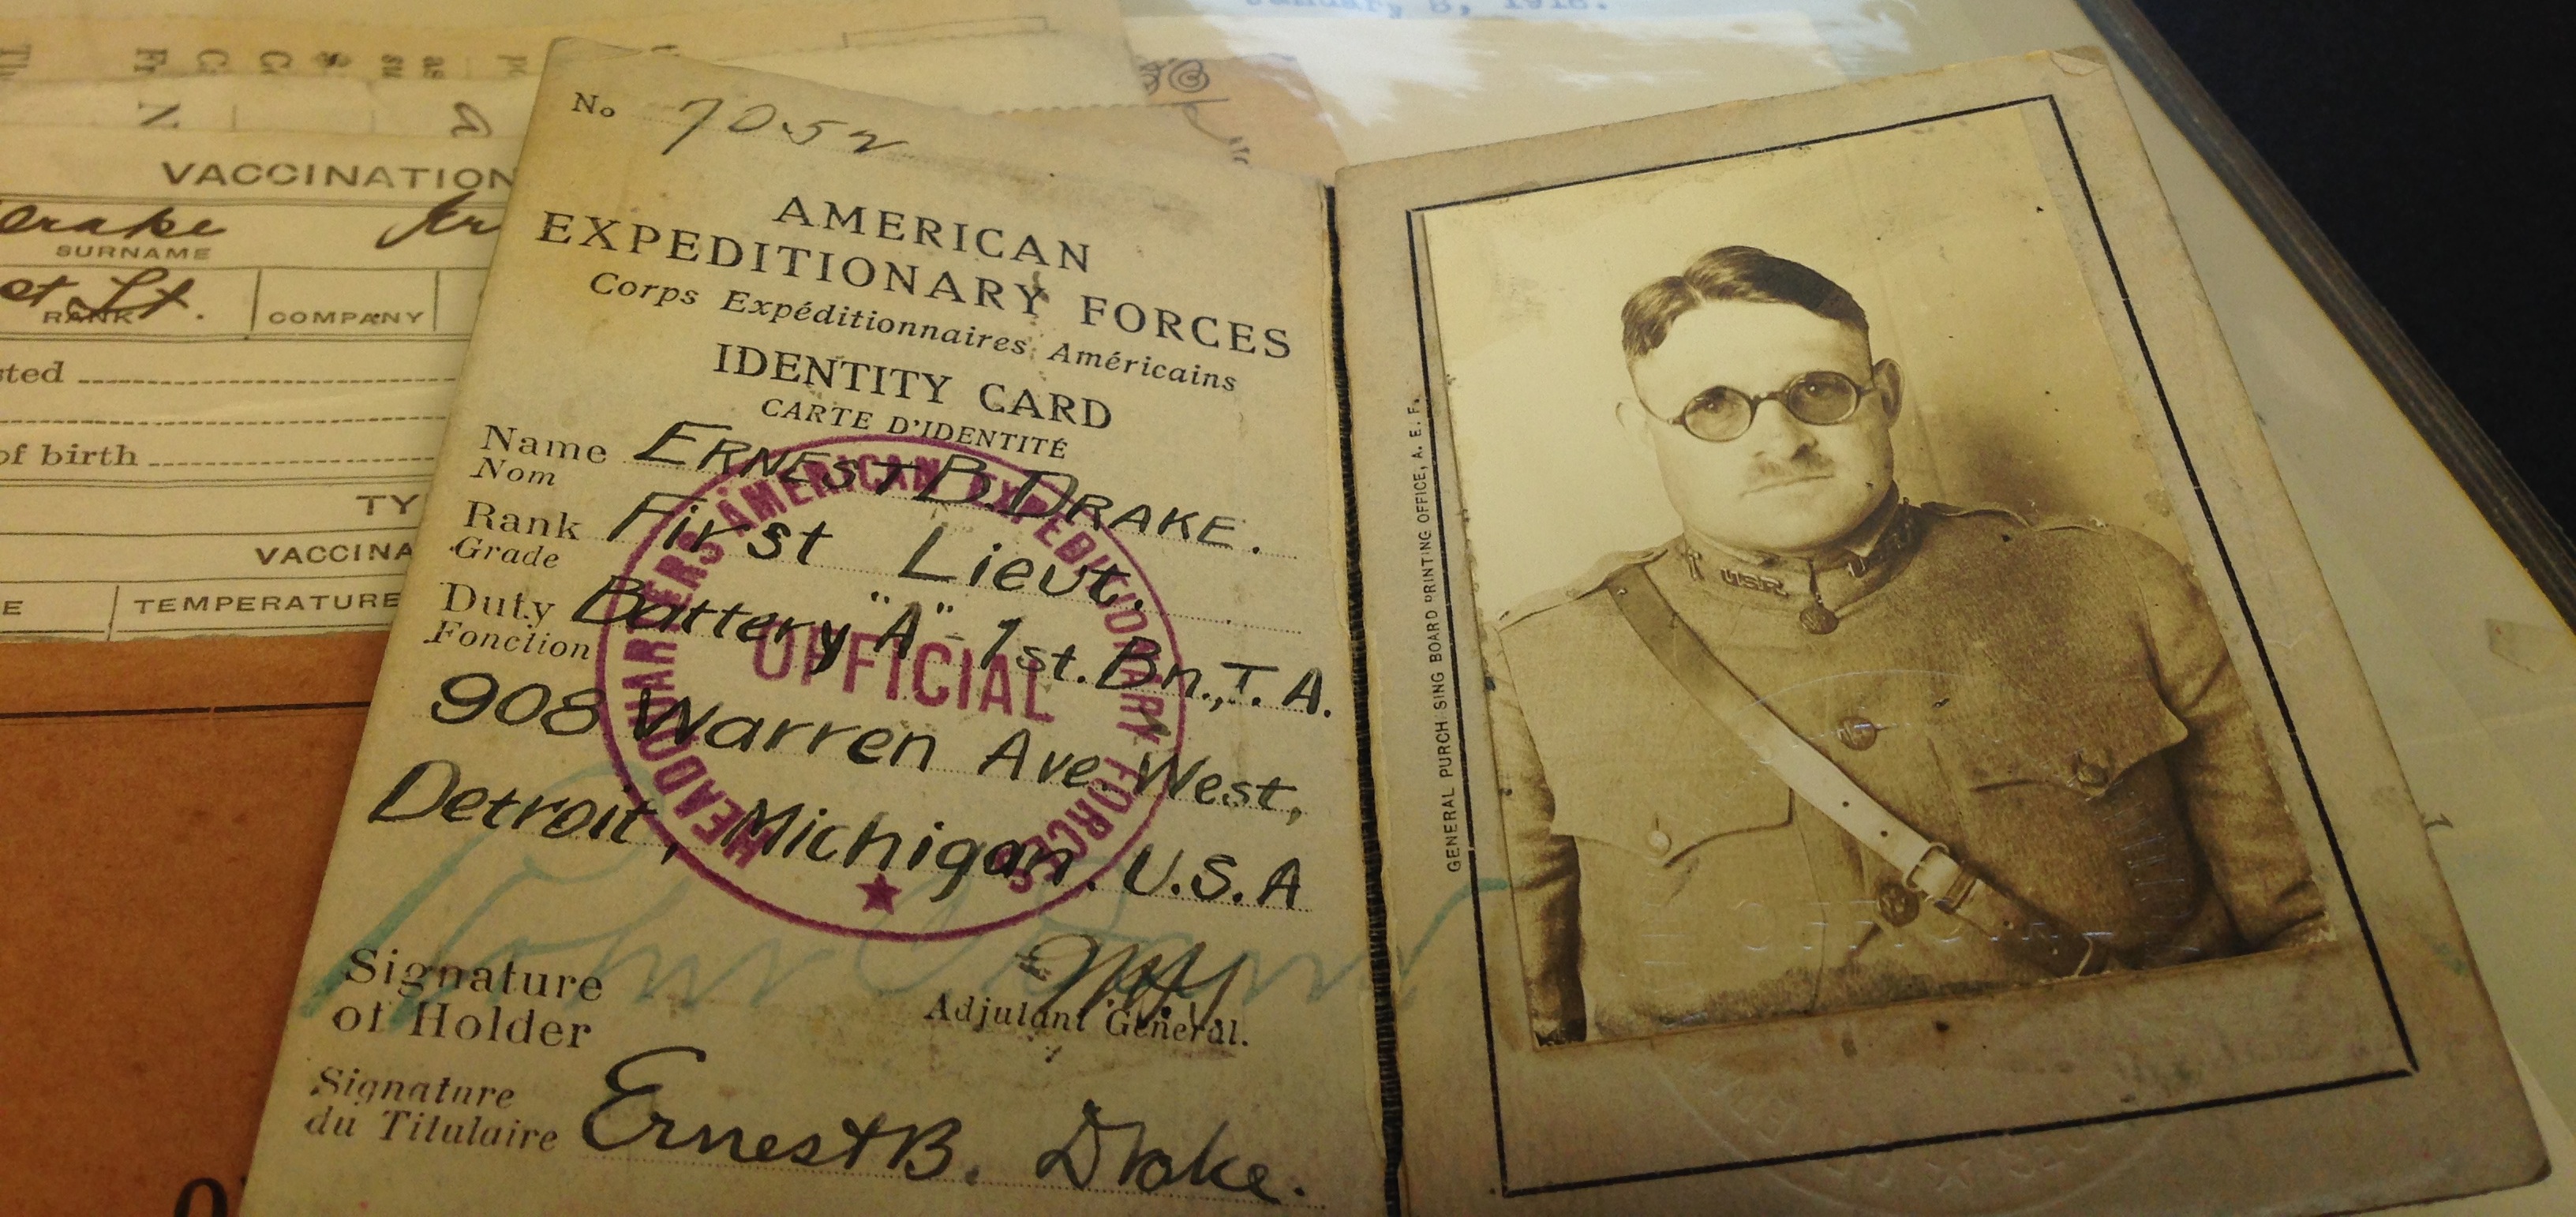 January 5, 1918.
VACCINATION
Drake
SURNAME
st Lt.
RANK
COMPANY
sted
of birth
TY
VACCINA
E
TEMPERATURE
No 7052
AMERICAN
EXPEDITIONARY FORCES
Corps Expéditionnaires Américains
IDENTITY CARD
CARTE D'IDENTITÉ
Name ERNEST B. DRAKE.
Nom
Rank First Lieut.
Grade
Duty Battery "A" - 1st. Bn., T. A.
Fonction
908 Warren Ave. West,
Detroit, Michigan. U.S.A
HEADQUARTERS AMERICAN EXPEDITIONARY FORCES
OFFICIAL
Signature
of Holder
Adjutant General.
Signature
du Titulaire
Ernest B. Drake.
GENERAL PURCHASING BOARD PRINTING OFFICE, A. E. F.
USR